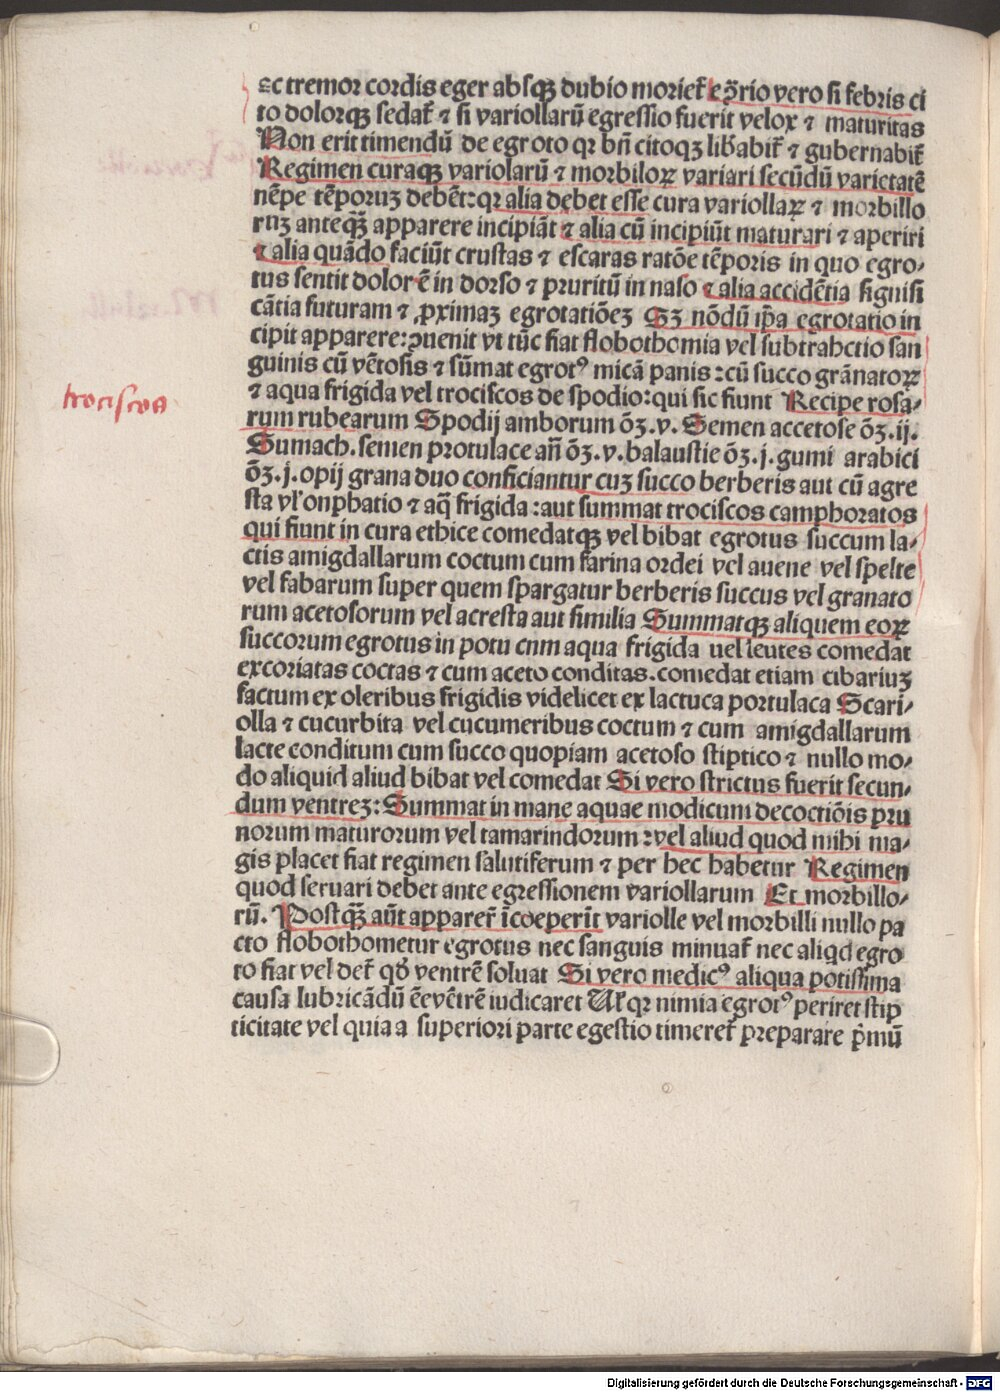 ac tremor cordis eger absqꝫ dubio morieť eꝯ̃rio vero si febris ci
to dolorqꝫ sedať ⁊ si variollarũ egressio fuerit velox ⁊ maturitas
Non erit timendũ de egroto qr bñ citoqꝫ lib̃abiť ⁊ gubernabiť
Regimen curaqꝫ variolarũ ⁊ morbiloꝝ variari secũdũ varietatẽ
nẽpe tẽporuꝫ debẽt: qr alia debet esse cura variollaꝝ ⁊ morbillo
ruꝫ anteqꝫ̃ apparere incipiãt ⁊ alia cũ incipiũt maturari ⁊ aperiri
⁊ alia quãdo faciũt crustas ⁊ ẽscaras ratõe tẽporis in quo egro⸗
tus sentit dolorẽ in dorso ⁊ pruritũ in naso ⁊ alia accidẽtia signifi
cãtia futuram ⁊ ꝓximaꝫ egrotatiõeꝫ Sꝫ nõdũ ip̃a egrotatio in
cipit apparere: ꝯuenit vt tũc fiat flobothomia vel subtrahctio san
guinis cũ vẽtosis ⁊ sũmat egrotꝰ micã panis: cũ succo grãnatoꝝ
⁊ aqua frigida vel trociscos de spodio: qui sic fiunt Recipe rosa⸗
trociscos
rum rubearum Spodij amborum õꝫ. v. Semen accetose õꝫ. ij.
Sumach. semen protulace añ õꝫ. v. balaustie õꝫ. j. gumi arabici
õꝫ. j. opij grana duo conficiantur cuꝫ succo berberis aut cũ agre
sta vľ onphatio ⁊ aq̃ frigida: aut summat trociscos camphoratos
qui fiunt in cura ethice comedatqꝫ vel bibat egrotus succum la⸗
ctis amigdallarum coctum cum farina ordei vel auene vel spelte
vel fabarum super quem spargatur berberis succus vel granato
rum acetosorum vel acresta aut similia Summatqꝫ aliquem eoꝝ
succorum egrotus in potu cnm aqua frigida uel leutes comedat
excoriatas coctas ⁊ cum aceto conditas. comedat etiam cibariuꝫ
factum ex oleribus frigidis videlicet ex lactuca portulaca Scari⸗
olla ⁊ cucurbita vel cucumeribus coctum ⁊ cum amigdallarum
lacte conditum cum succo quopiam acetoso stiptico ⁊ nullo mo⸗
do aliquid aliud bibat vel comedat Si vero strictus fuerit secun⸗
dum ventreꝫ: Summat in mane aquae modicum decoctiõis pru
norum maturorum vel tamarindorum: vel aliud quod mihi ma⸗
gis placet fiat regimen salutiferum ⁊ per hec habetur Regimen
quod seruari debet ante egressionem variollarum Et morbillo⸗
rũ. Postqꝫ̃ aũt apparer̃ ĩcoeperĩt variolle vel morbilli nullo pa
cto flobothometur egrotus nec sanguis minuať nec aliqd egro
to fiat vel deť qđ ventrẽ soluat Si vero medicꝰ aliqua potissima
causa lubricãdũ ẽe vẽtrẽ iudicaret Uľ qr nimia egrotꝰ periret stip
ticitate vel quia a superiori parte egestio timereť preparare p̃mũ
Digitalisierung gefördert durch die Deutsche Forschungsgemeinschaft - DFG